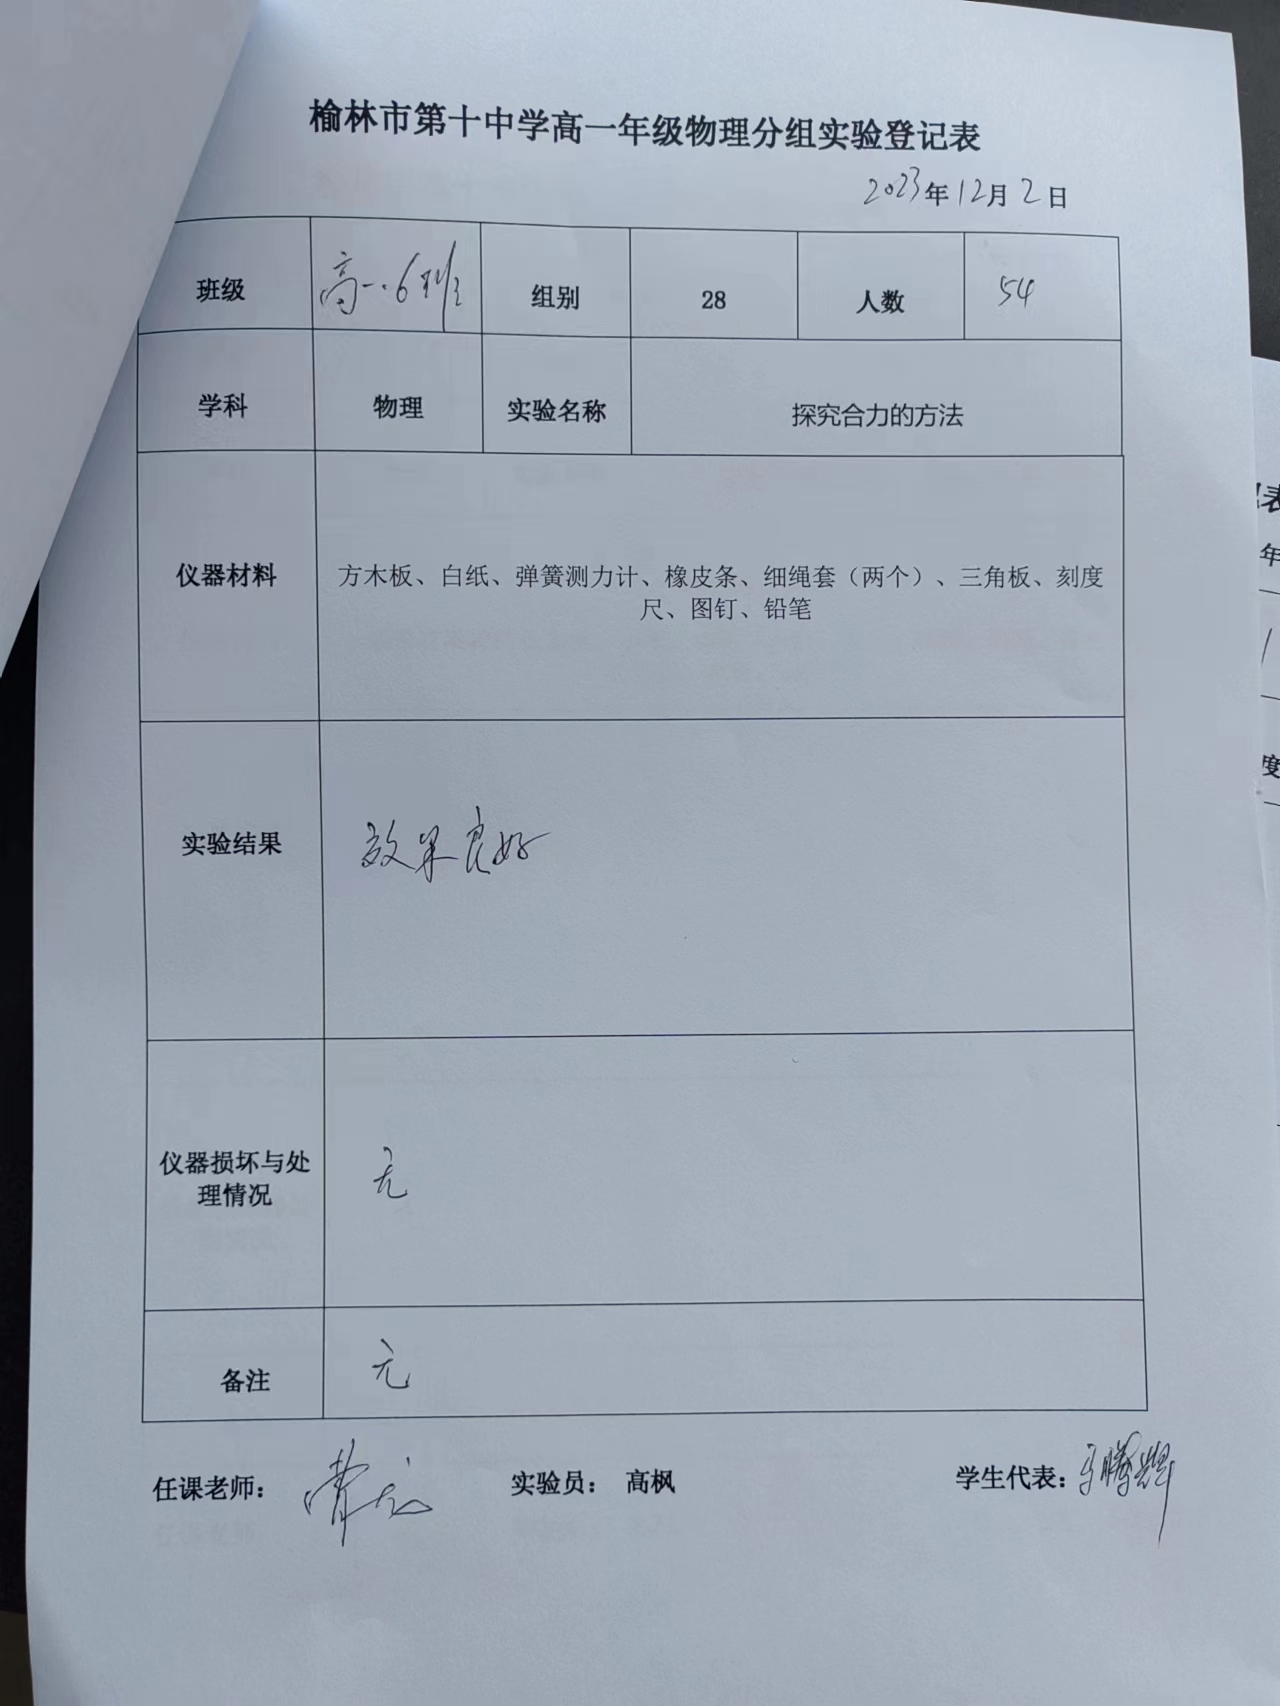 榆林市第十中学高一年级物理分组实验登记表
2023年12月2日
班级 高一.6班 组别 28 人数 54
学科 物理 实验名称 探究合力的方法
仪器材料 方木板、白纸、弹簧测力计、橡皮条、细绳套（两个）、三角板、刻度
尺、图钉、铅笔
实验结果 效果良好
仪器损坏与处
理情况
无
备注 无
任课老师： 实验员： 高枫 学生代表：
表
年
度